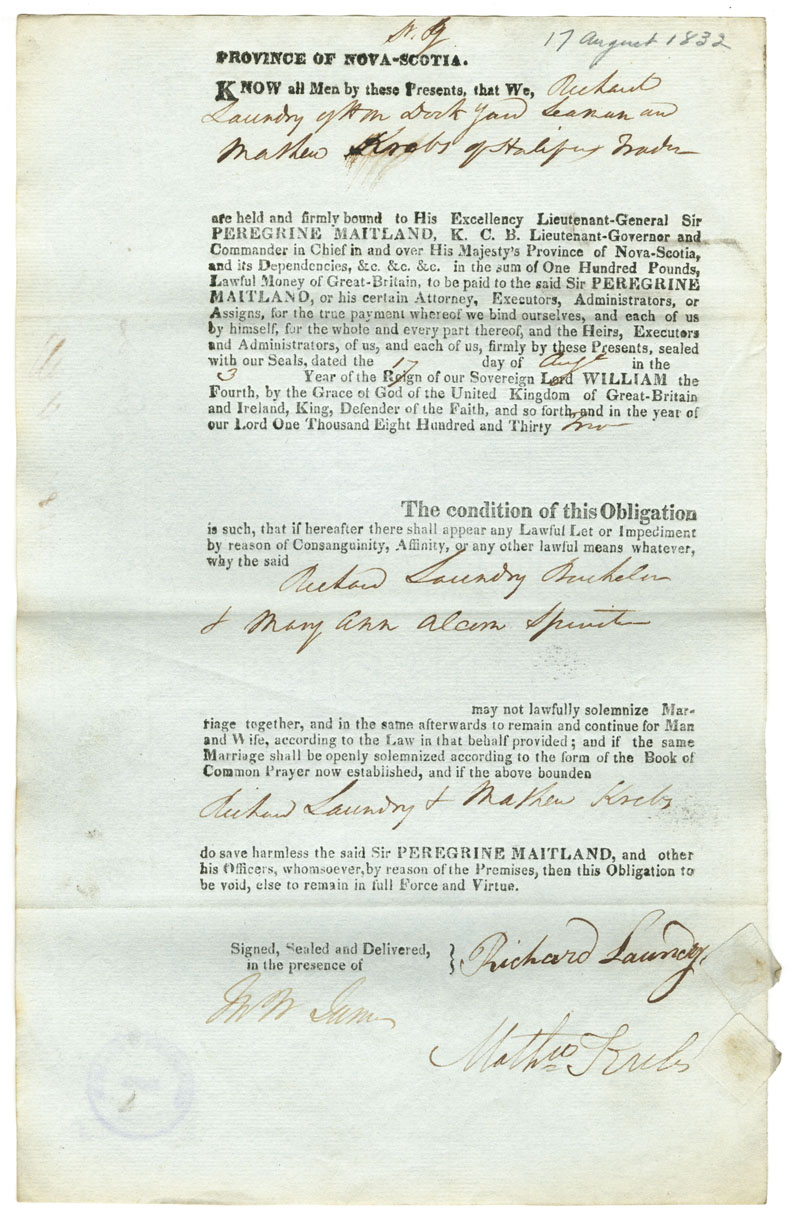 17 August 1832
PROVINCE OF NOVA-SCOTIA.
KNOW all Men by these Presents, that We, Richard
Laundry of HM Dock Yard Seaman and
Mathew Krebs of Halifax Trader
are held and firmly bound to His Excellency Lieutenant-General Sir
PEREGRINE MAITLAND, K. C. B. Lieutenant-Governor and
Commander in Chief in and over His Majesty's Province of Nova-Scotia,
and its Dependencies, &c. &c. &c. in the sum of One Hundred Pounds,
Lawful Money of Great-Britain, to be paid to the said Sir PEREGRINE
MAITLAND, or his certain Attorney, Executors, Administrators, or
Assigns, for the true payment whereof we bind ourselves, and each of us
by himself, for the whole and every part thereof, and the Heirs, Executors
and Administrators, of us, and each of us, firmly by these Presents, sealed
with our Seals, dated the 17 day of Augt in the
3 Year of the Reign of our Sovereign Lord WILLIAM the
Fourth, by the Grace of God of the United Kingdom of Great-Britain
and Ireland, King, Defender of the Faith, and so forth, and in the year of
our Lord One Thousand Eight Hundred and Thirty Two
The condition of this Obligation
is such, that if hereafter there shall appear any Lawful Let or Impediment
by reason of Consanguinity, Affinity, or any other lawful means whatever,
why the said
Richard Laundry Bachelor
& Mary Ann Alcorn Spinster
may not lawfully solemnize Mar-
riage together, and in the same afterwards to remain and continue for Man
and Wife, according to the Law in that behalf provided; and if the same
Marriage shall be openly solemnized according to the form of the Book of
Common Prayer now established, and if the above bounden
Richard Laundry & Mathew Krebs
do save harmless the said Sir PEREGRINE MAITLAND, and other
his Officers, whomsoever, by reason of the Premises, then this Obligation to
be void, else to remain in full Force and Virtue.
Signed, Sealed and Delivered, } Richard Laundry
in the presence of
Mathw Krebs